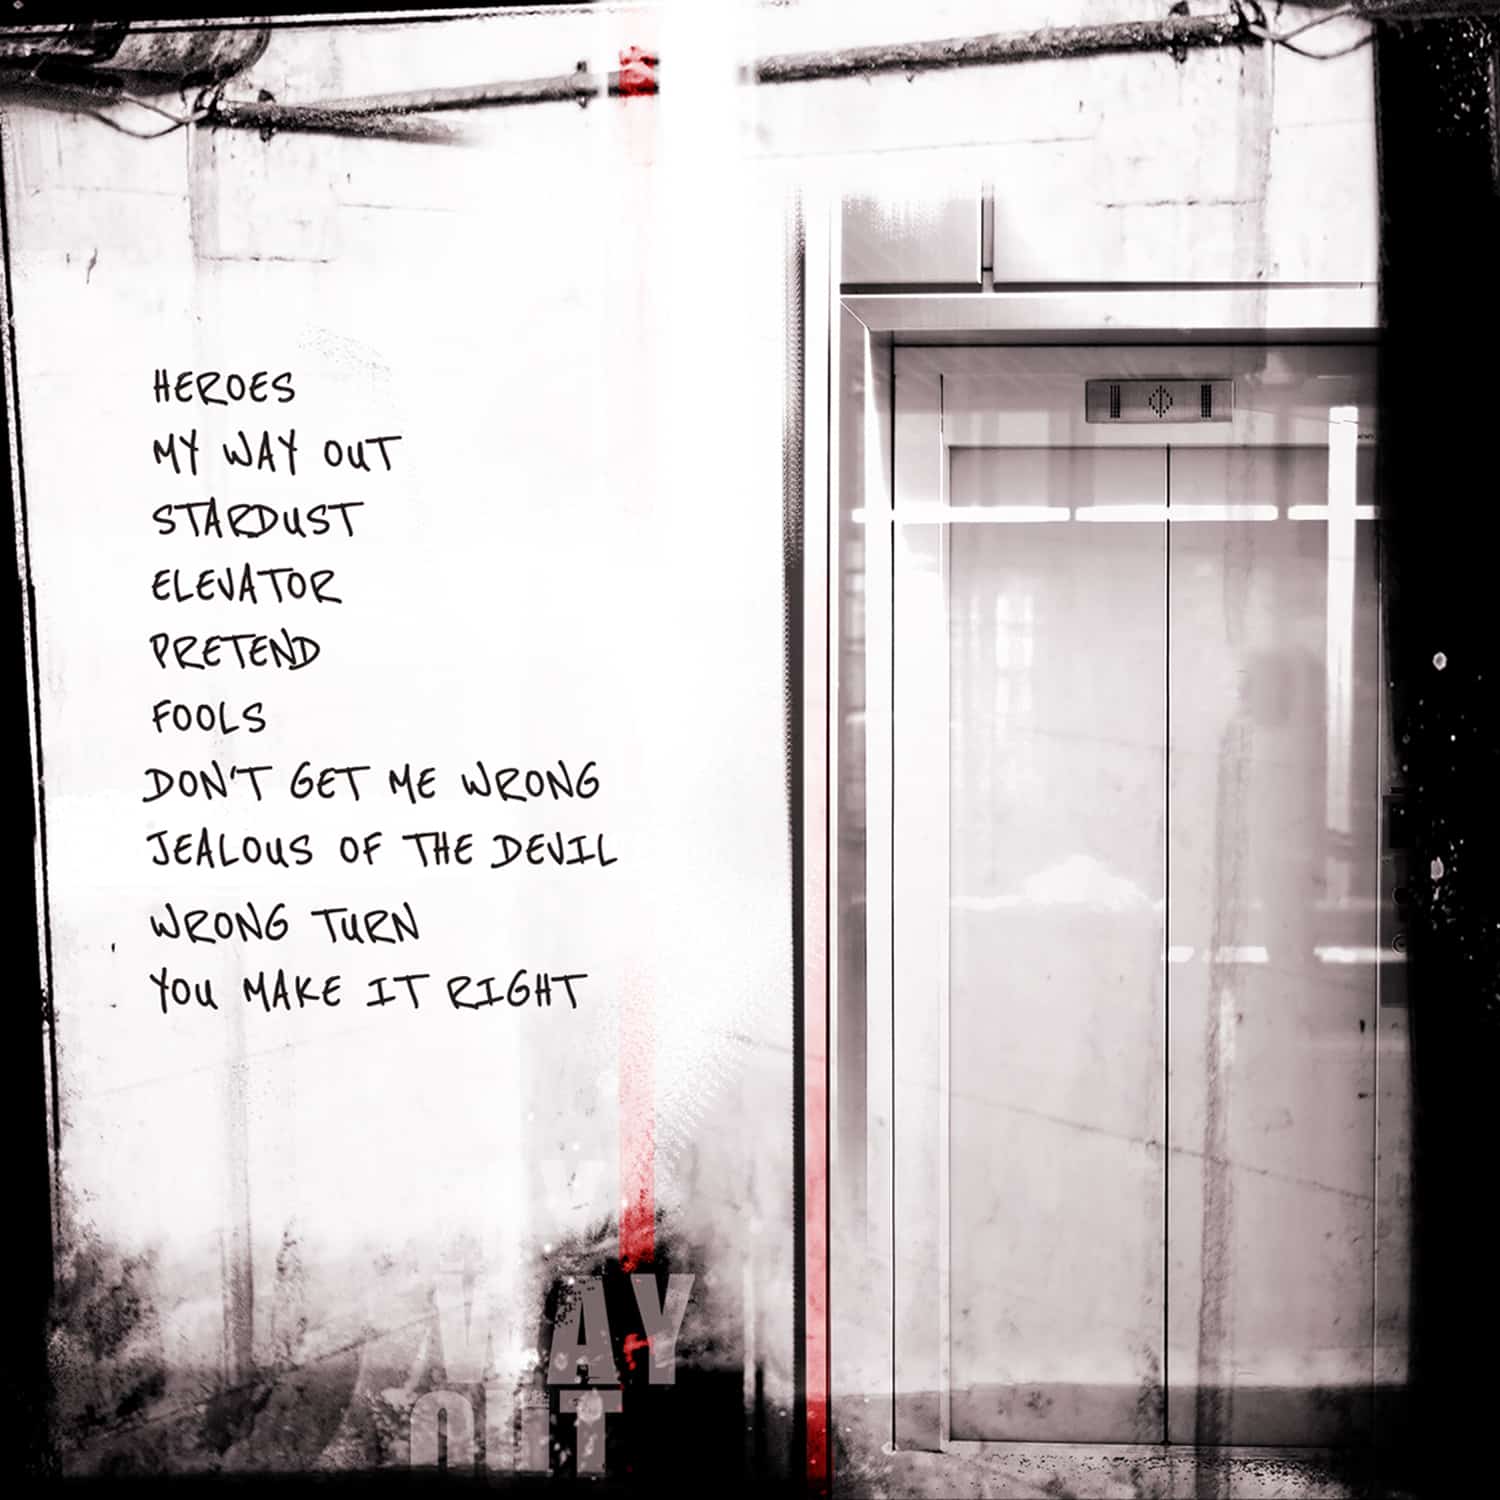 HEROES
MY WAY OUT
STARDUST
ELEVATOR
PRETEND
FOOLS
DON'T GET ME WRONG
JEALOUS OF THE DEVIL
WRONG TURN
YOU MAKE IT RIGHT
MY
WAY
OUT